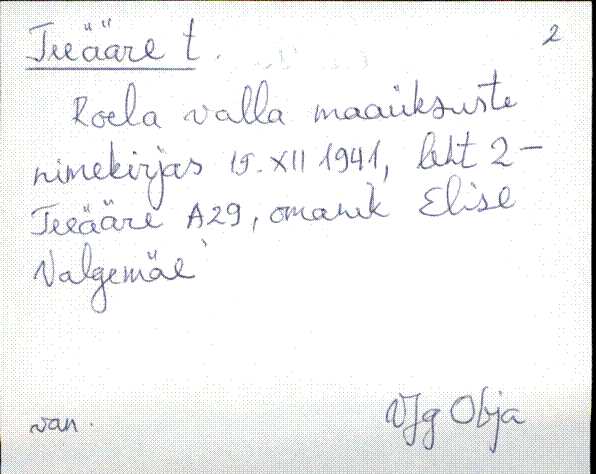 Teeääre t.
2
Roela valla maaüksuste
nimekirjas 15.XII 1941, leht 2-
Teeääre A29, omanik Elise
Valgemäe
van.
VJg Obja